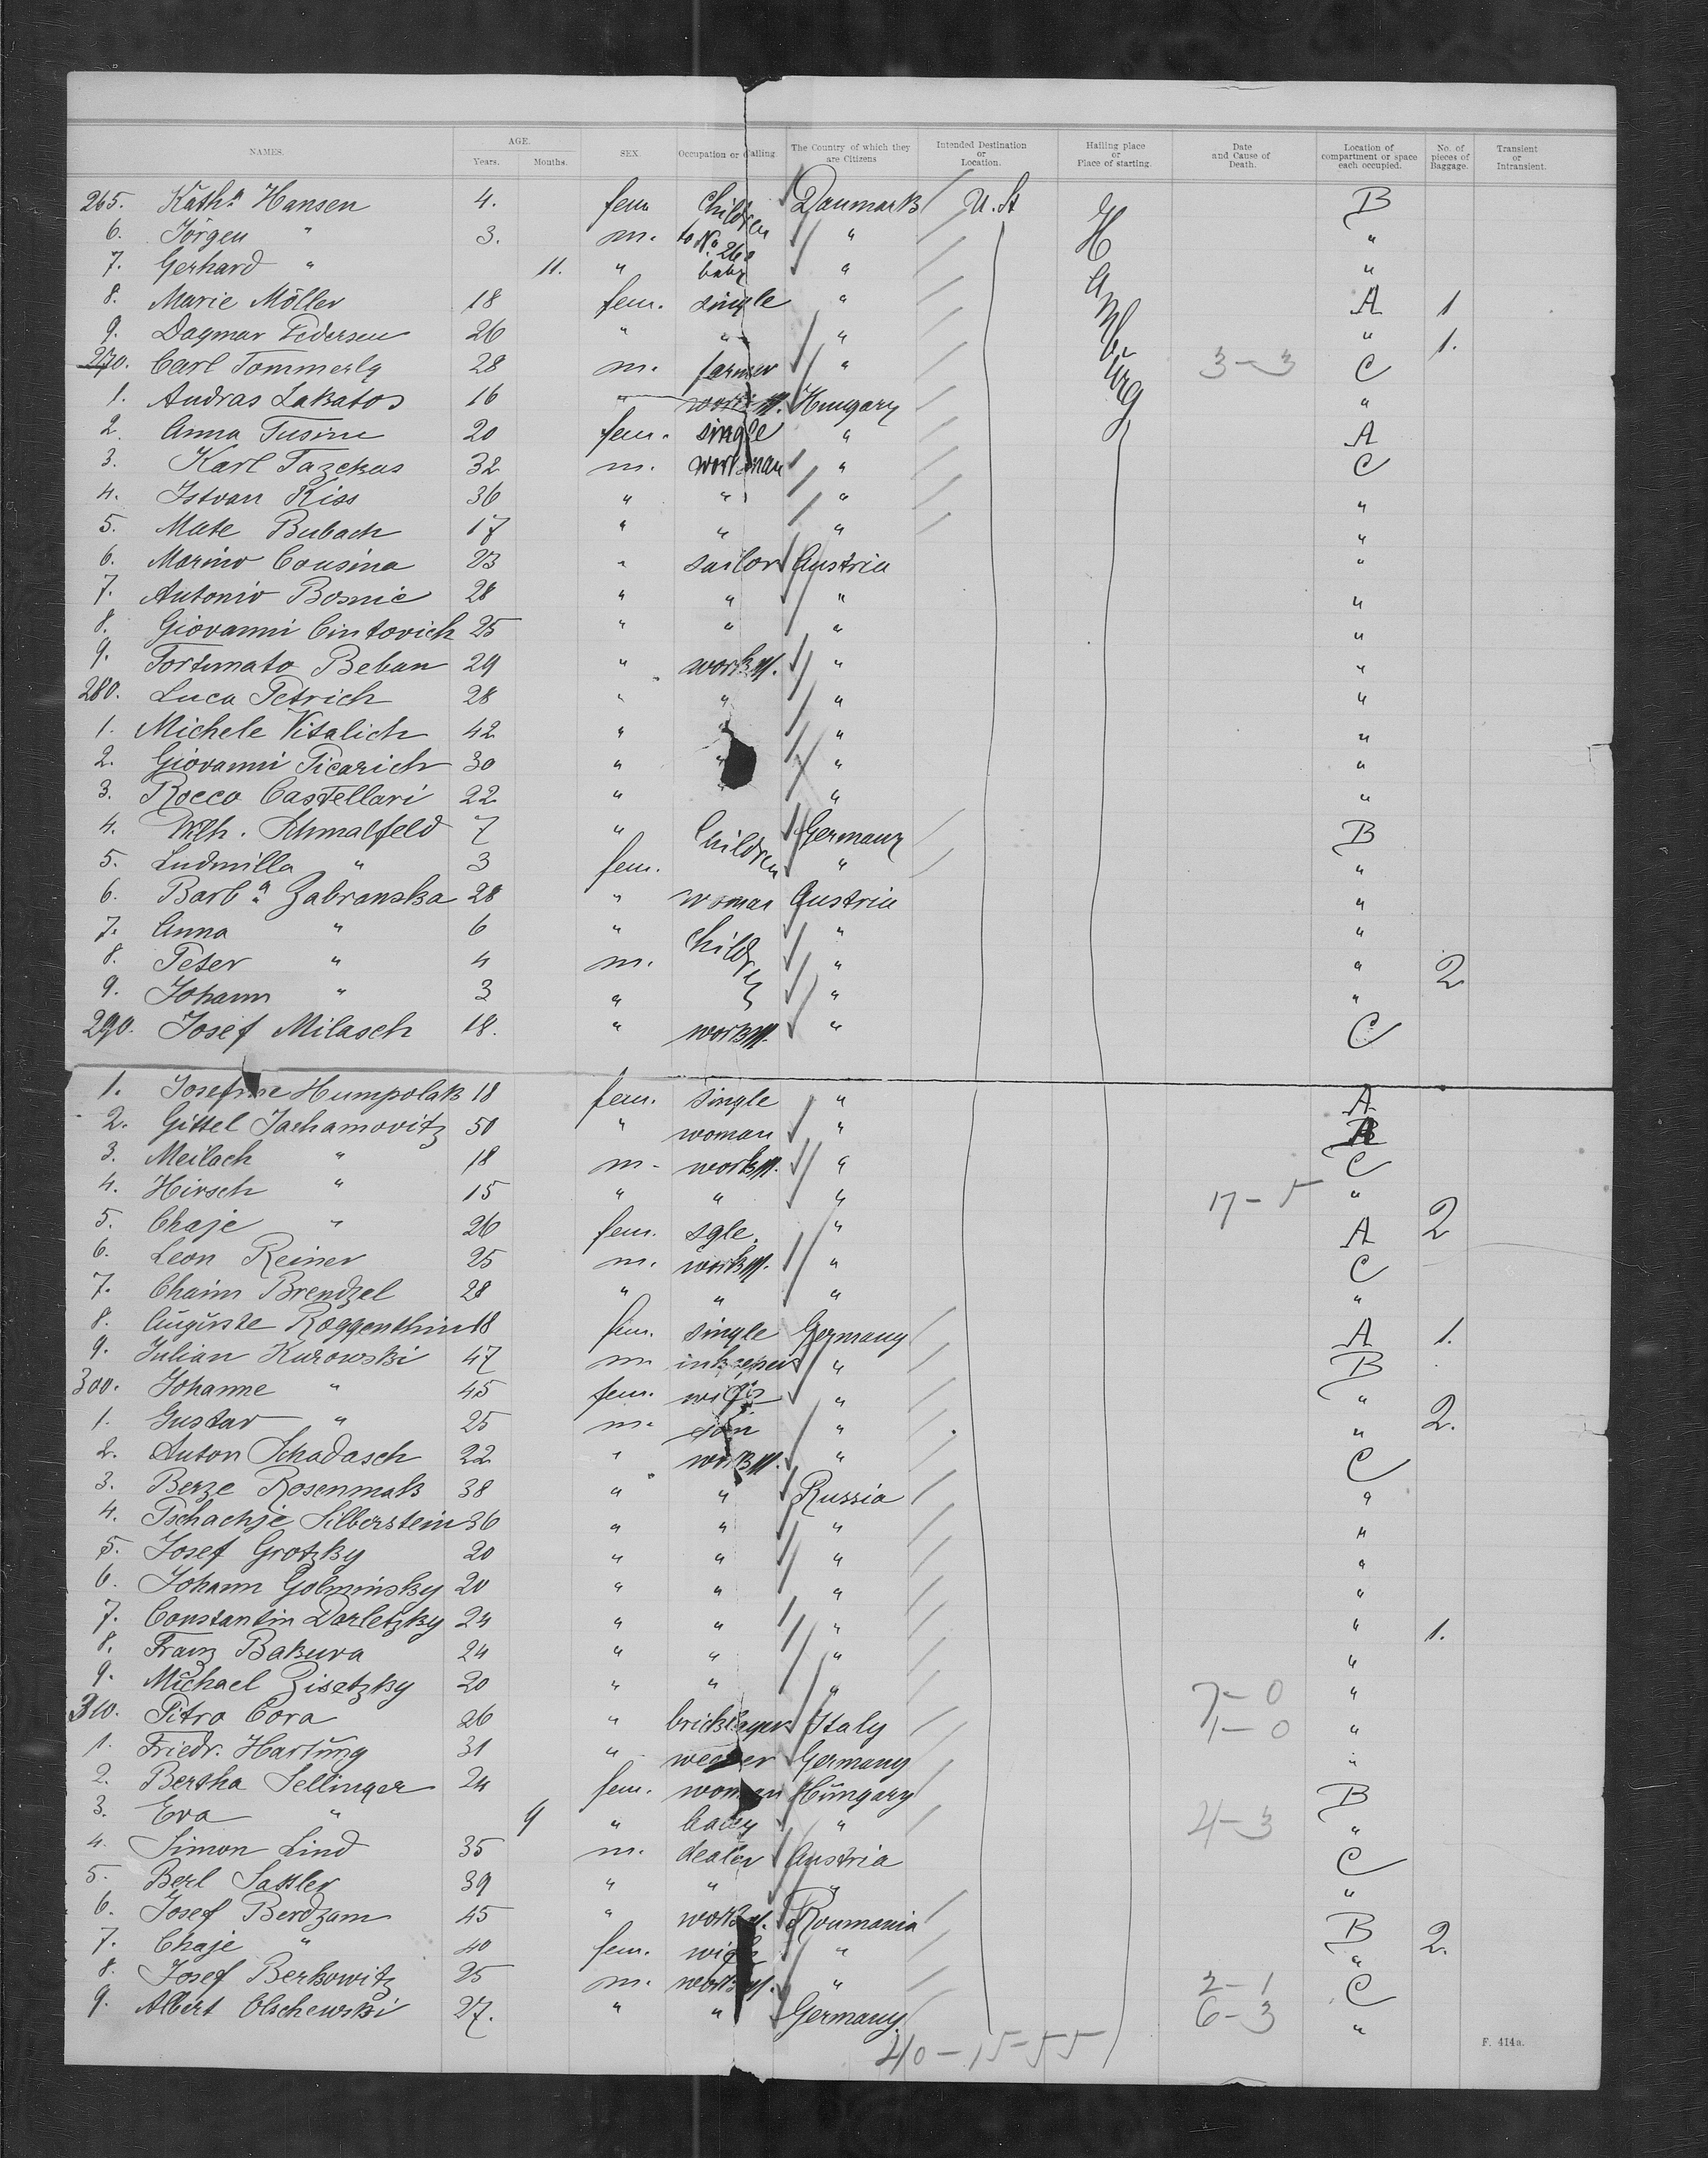 NAMES. AGE. Years. Months. SEX. Occupation or Calling. The Country of which they are Citizens Intended Destination or Location. Hailing place or Place of starting. Date and Cause of Death. Location of compartment or space each occupied. No. of pieces of Baggage. Transient or Intransient.
265. Kath.a Hansen 4. fem Children Danmark U. St Hamburg B
6. Jörgen " 3. m. to No. 260 " "
7. Gerhard " 11. " baby " "
8. Marie Möller 18 fem. single " A 1
9. Dagmar Pedersen 26 " " " " 1.
270. Carl Tommerly 28 m. farmer " 3-3 C
1. Andras Lakatos 16 " workm. Hungary "
2. Anna Tusim 20 fem. single " A
3. Karl Tazckas 32 m. workman " C
4. Istvan Kiss 36 " " " "
5. Mate Bubach 17 " " " "
6. Marino Cousina 23 " sailor Austria "
7. Antonio Bosnic 28 " " " "
8. Giovanni Cintovich 25 " " " "
9. Fortunato Beban 29 " workm. " "
280. Luca Petrich 28 " " " "
1. Michele Vitalich 42 " " " "
2. Giovanni Picarich 30 " " " "
3. Rocco Castellari 22 " " "
4. Wilh. Schmalfeld 7 " Children Germany B
5. Ludmilla " 3 fem. " "
6. Barb.a Zabranska 28 " woman Austria "
7. Anna " 6 " Children " "
8. Peter " 4 m. " " 2
9. Johann " 3 " " "
290. Josef Milasch 18. " workm. " C
1. Josefine Humpolak 18 fem. single " A
2. Gittel Jachamovitz 50 " woman " B
3. Meilach " 18 m. workm. " C
4. Hirsch " 15 " " " 17-5 "
5. Chaje " 26 fem. sgle. " A 2
6. Leon Reiner 25 m. workm. " C
7. Chaim Brendzel 28 " " " "
8. Auguste Roggenthin 18 fem. single Germany A 1.
9. Julian Kurowski 47 m. inkeeper " B
300. Johanne " 45 fem. wife " "
1. Gustav " 25 m. son " " 2.
2. Anton Schadasch 22 " workm. " C
3. Berze Rosenmak 38 " " Russia "
4. Tschachje Silberstein 36 " " " "
5. Josef Grotzky 20 " " " "
6. Johann Golminsky 20 " " " "
7. Constantin Darletzky 24 " " " " 1.
8. Franz Bakura 24 " " " "
9. Michael Zisetzky 20 " " " 7-0 "
310. Pitro Cora 26 " bricklayer Italy 1-0 "
1. Friedr. Hartung 31 " Germany "
2. Bertha Sellinger 24 fem. woman Hungary B
3. Eva " 9 " baby " 4-3 "
4. Simon Lind 35 m. dealer Austria C
5. Berl Sattler 39 " " " "
6. Josef Berdzam 45 " workm. Roumania B 2.
7. Chaje " 40 fem. wife " "
8. Josef Berkowitz 25 m. workm. " 2-1 C
9. Albert Olschewski 27. " " Germany. 6-3 "
40-15-55
F. 414a.